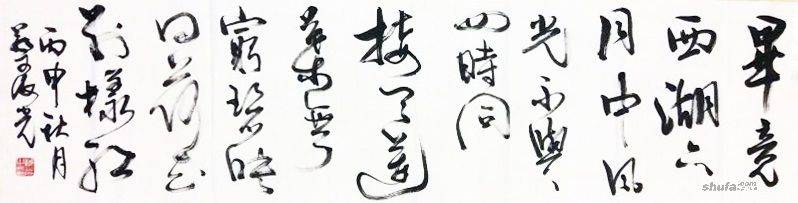 畢竟
西湖六
月中风
光不與
四時同
接天蓮
葉無
窮碧映
日荷花
别樣紅
丙申秋月
shufa.com